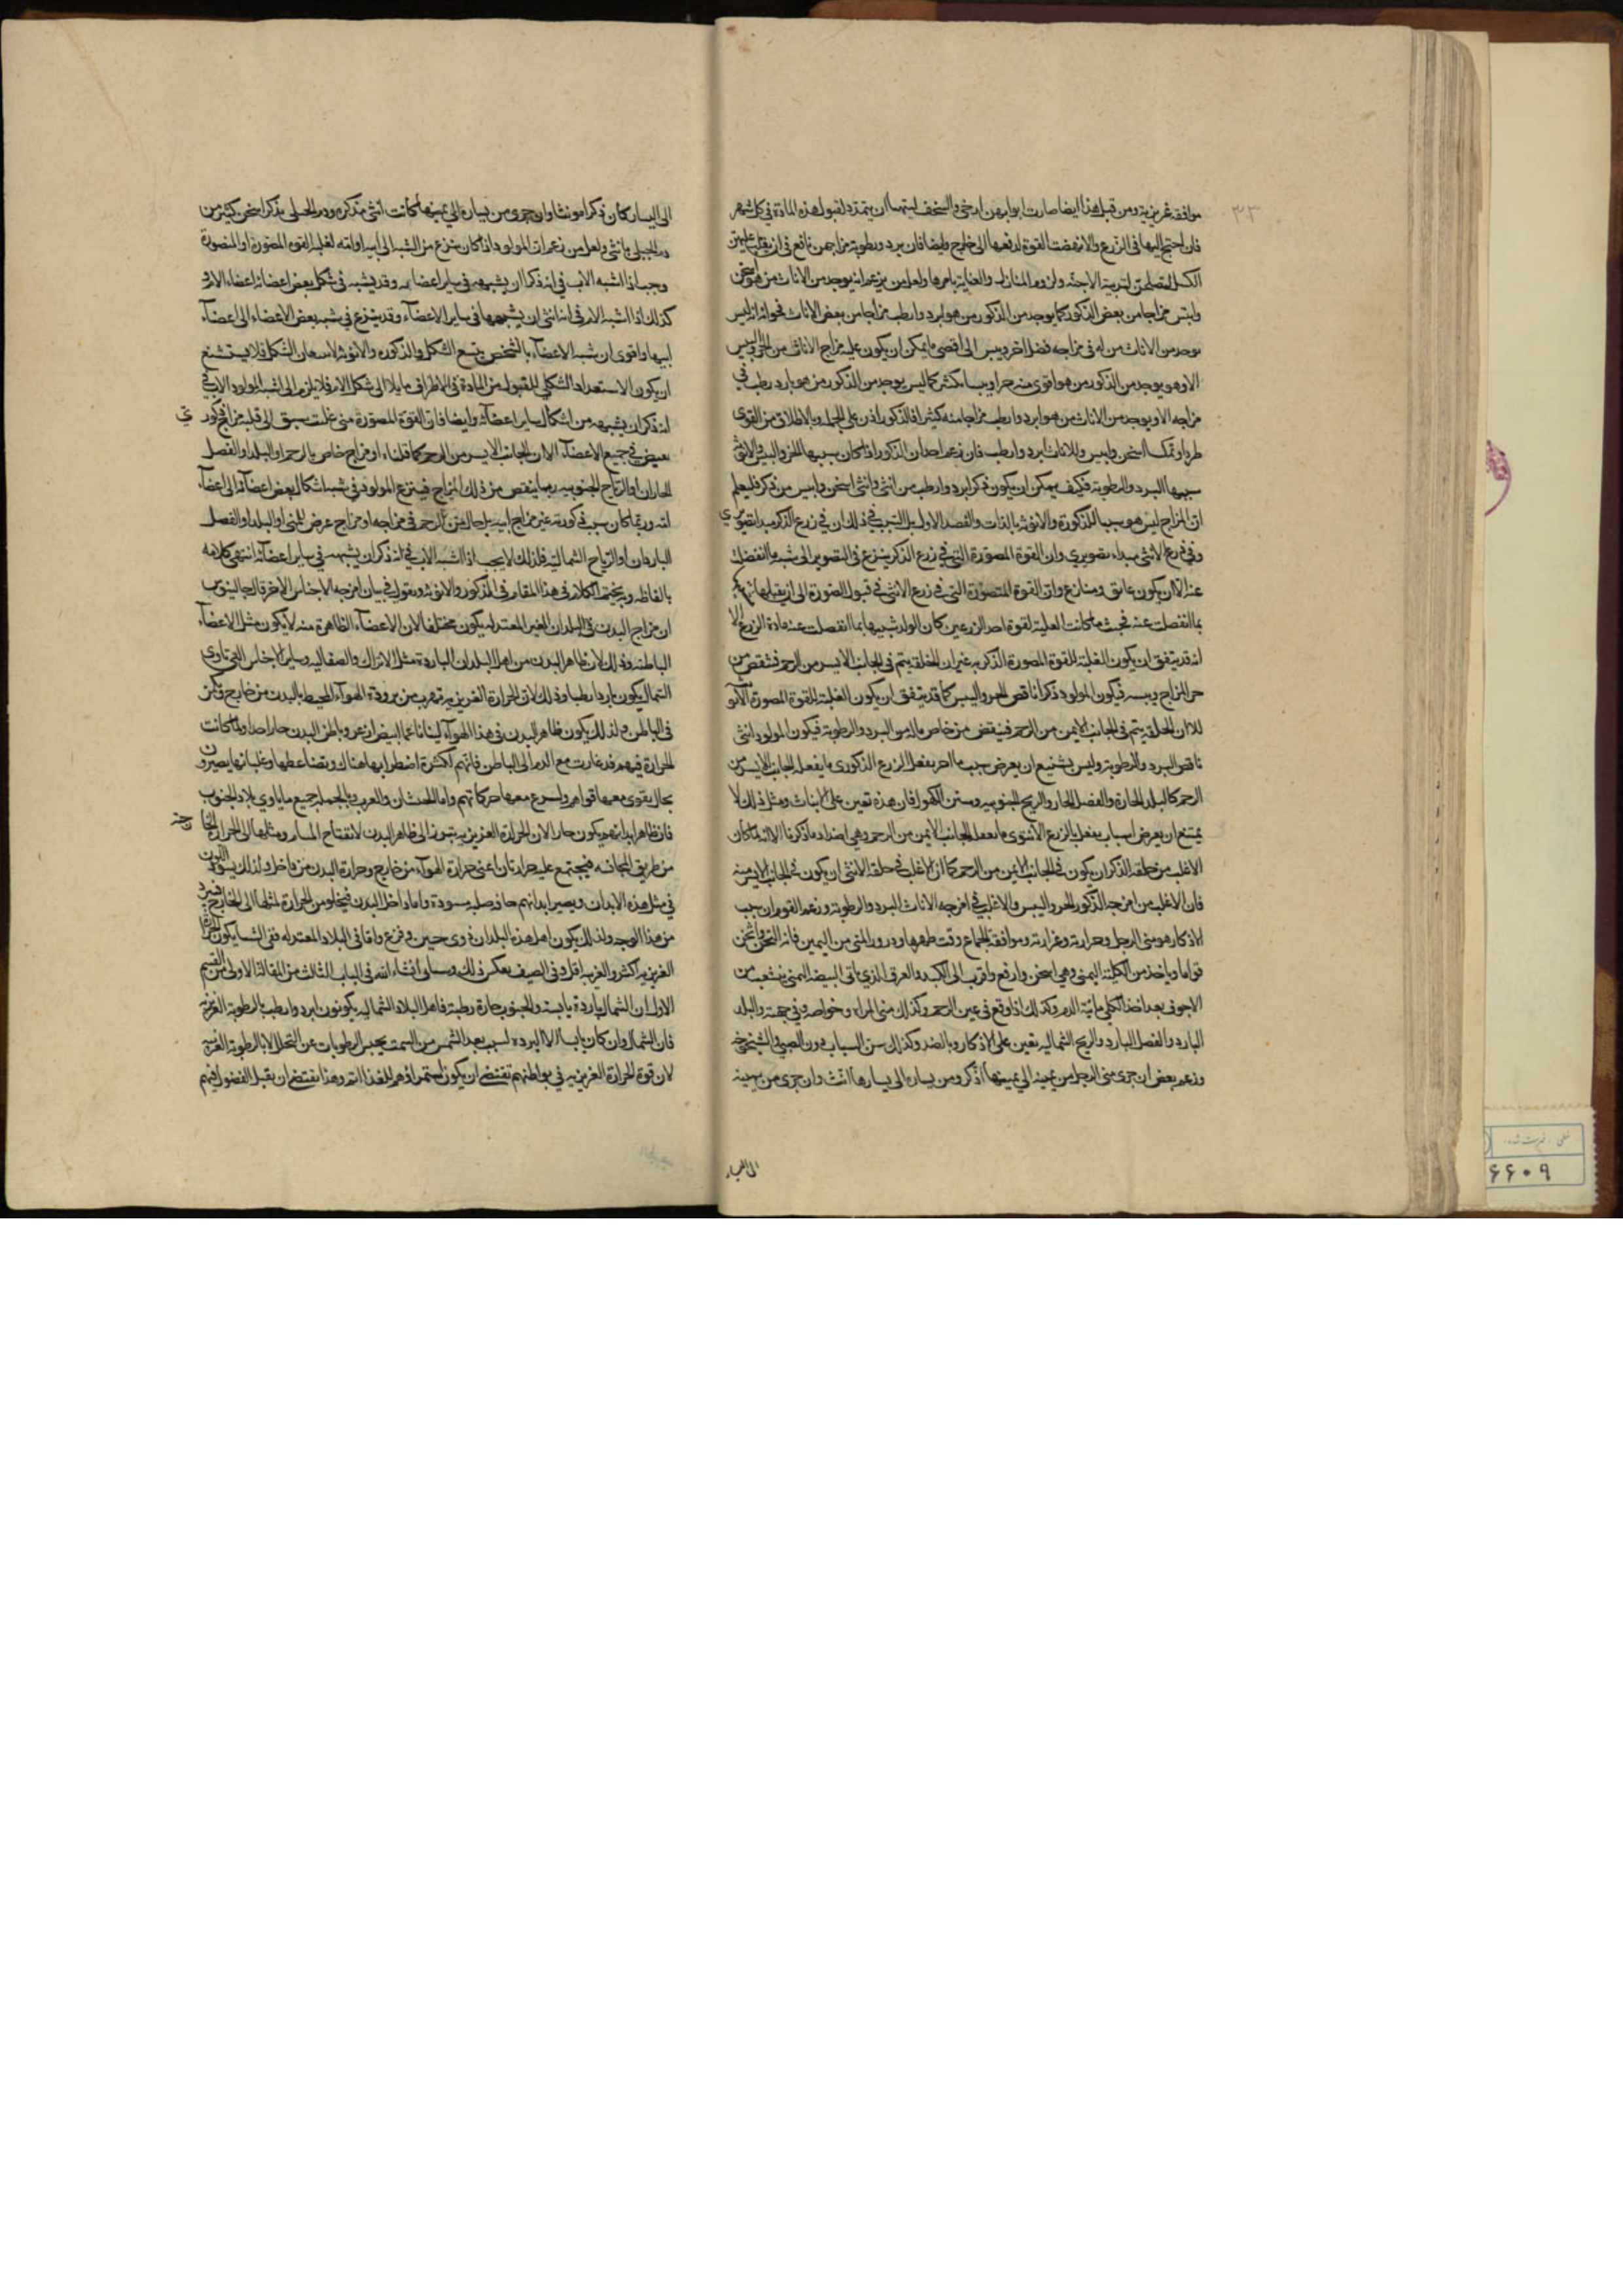 ٣٣
موافقة غريزية ومن قبل هذا ايضا صارت ابوابهن ارخى والسخف لبتهيا ان يتمدد لقبول هذه المادة في كل شهر
فان احتيج اليها في الزرع والا نهضت القوة لدفعها الى خارج وايضا فان برد ورطوبة مزاجهن نافع في ان يقبل عليهن
الكسل لتربية الاجنة ولزوم المنازل والعناية بامرها ولعل من يزعم انه يوجد من الاناث من هو اسخن
وايبس مزاجا من بعض الذكور كما يوجد من الذكور من هو ابرد وارطب مزاجا من بعض الاناث فجوابه انه ليس
يوجد من الاناث من له في مزاجه فضل اخر ويبس الى اقصى ما يمكن ان يكون عليه مزاج الاناث من الحر واليبس
الا وهو يوجد من الذكور من هو اقوى منه حرا ويبسا بكثير كما ليس يوجد من الذكور من هو بارد رطب في
مزاجه الا ويوجد من الاناث من هو ابرد وارطب مزاجا منه كثيرا فالذكور اذن على الجملة وبالاطلاق من القوى
طرا اسخن وايبس والاناث ابرد وارطب فان زعم احد ان الذكور اذا كان سببها الحر واليبس والانثى
سببها البرد والرطوبة فكيف يمكن ان يكون ذكر ابرد وارطب من انثى وانثى اسخن وايبس من ذكر فليعلم
ان المزاج ليس هو سببا للذكورة والانوثة بالذات والقصد الاول بل السبب في ذلك ان في زرع الذكر مبدا تصويري
وفي زرع الانثى مبداء تصوري وان القوة المصورة التي في زرع الذكر ينزع في التصوير الى شبه ما انفصلت
عنه الا ان يكون عائق ومنازع وان القوة المتصورة التي في زرع الانثى في قبول الصورة الى ان يقبلها
بما انفصلت عنه فحيث ما كانت الغلبة لقوة احد الزرعين كان الولد شبيها بما انفصلت عنه مادة الزرع الا
انه قد يتفق ان يكون الغلبة للقوة المصورة الذكرية غير ان الخلقة يتم في الجانب الايسر من الرحم فينقص من
حر المزاج ويبسه فيكون المولود ذكرا ناقص الحر واليبس كما قد يتفق ان يكون الغلبة للقوة المصورة
الا ان الخلقة يتم في الجانب الايمن من الرحم فينقص من خاص ماله من البرد والرطوبة فيكون المولود انثى
ناقص البرد والرطوبة وليس بشنيع ان يعرض سبب ما اخر يفعل الزرع الذكوري ما يفعله الجانب الايسر من
الرحم كالبلد الحارة والفصل الحار والريح الجنوبية وسن الكهول فان هذه تعين على الايناث ومثل ذلك لا
يمتنع ان يعرض اسباب يفعل بالزرع الانثوي ما يفعله الجانب الايمن من الرحم وهي اضداد ما ذكرنا الا انه لما كان
الاغلب من خلقة الذكر ان يكون في الجانب الايمن من الرحم كما ان الاغلب في خلقة الانثى ان يكون في الجانب الايسر منه
فان الاغلب من امزجة الذكور الحر واليبس والاغلب في امزجة الاناث البرد والرطوبة وزعم القوم ان سبب
الاذكار هو منى الرجل وحرارته وغزارته وموافقة الجماع وقت طهرها ودرور المنى من اليمين فانه اسخن واثخن
قواما وياخذ من الكلية اليمنى وهي اسخن وارفع واقرب الى الكبد والعرق الذي ياتي البيضة اليمنى يتشعب من
الاجوف بعد اخذ الكلى مائية الدم وكذلك اذا وقع في عين الرحم وكذلك منى المراة وخواصه وفي جهته والبلد
البارد والفصل البارد والريح الشمالية تعين على الاذكار وبالضد وكذلك سن الشباب دون الصبي والشيخوخه
وزعم بعض ان جرى منى الرجل من يمينه الى يمينها اذكر ومن يساره الى يسارها انث وان جرى من يمينه
الى اليسار
الى اليسار كان ذكرا مونثا وان جرى من يساره الى يمينها كانت انثى مذكرة
وجب اذا اشبه الاب في انه ذكر ان يشبهه في ساير اعضايه وقد يشبه في شكل بعض اعضائه اعضاء الام
كذلك اذا اشبه الام في انه انثى ان يشبهها في ساير الاعضاء وقد ينزع في شبه بعض الاعضاء الى اعضاء
ابيها واقوى ان شبه الاعضاء بالشخص يتبع الشكل والذكورة والانوثة لا يتبعان الشكل فلا يستشنع
ان يكون الاستعداد الشكلي للقبول من المادة في الاطراف مايلا الى شكل الام فلا يلزم الى اشبه المولود الاب في
انه ذكر ان يشبهه من اشكال ساير اعضائه وايضا فان القوة المصورة متى غلبت سبق الى قلبه مزاج ذكوري
يفيض في جميع الاعضاء الا ان الجانب الايسر من الرحم كما قلناه او مزاج خاص بالرحم او البلد او الفصل
الحاران او الرياح الجنوبيه ربما ينقص من ذلك المزاج فينزع المولود في شبه اشكال بعض اعضائه الى اعضاء
امه وربما كان سبب ذكورته غير مزاج ابيه بل حال من الرحم في مزاجه او مزاج عرض للمنى او البلد او الفصل
الباردان او الرياح الشمالية فلذلك لا يجب اذا اشبه الاب في انه ذكر ان يشبهه في ساير اعضائه انتهى كلامه
بالفاظه وبه يختم الكلام في هذا المقام في الذكور والانوثة ونقول في بيان امزجة الاجناس الاخر قال جالينوس
ان مزاج البدن في البلدان الغير المعتدلة يكون مختلفا لان الاعضاء الظاهرة منه لا يكون مثل الاعضاء
الباطنة وذلك لان ظاهر البدن من اهل البلدان الباردة مثل الاتراك والصقالبة وساير الاجناس التي تاوي
الشمال يكون باردا رطبا وذلك لان الحرارة الغريزية تهرب من برودة الهواء المحيط بالبدن من خارج وتكن
في الباطن ولذلك يكون ظاهر البدن في هذا الهواء لينا ناعما ابيض ازعر وباطن البدن حارا جدا ولما كانت
الحرارة فيهم قد غارت مع الدم الى الباطن فانهم لكثرة اضطرابها هناك وتضاغطها وغليانها يصيرون
بحال يقوى معها قواهم ويسرع معها حركاتهم واما الحبشان والعرب وبالجملة جميع ما ياوي بلاد الجنوب
فان ظاهر ابدانهم يكون حارا لان الحرارة الغريزية تبرز الى ظاهر البدن لانفتاح المسام وميلها الى الحرارة الخارجة
من طريق المجانسة فيجتمع عليه حرارتان اعنى حرارة الهواء من خارج وحرارة البدن من داخل ولذلك يسود اللون
في مثل هذه الابدان ويصير ابدانهم جافة صلبة مسودة واما داخل البدن فيخلو من الحرارة لميلها الى الخارج فيبرد
من هذا الوجه ولذلك يكون اهل هذه البلدان ذوى جبن وفزع واما في البلاد المعتدلة ففي الشتاء يكون الحرارة
الغريزية اكثر والغريبة اقل وفي الصيف بعكس ذلك وسياتى انشاء الله في الباب الثالث من المقالة الاولى من القسم
الاول ان الشمال باردة يابسة والجنوب حارة رطبة فاهل البلاد الشمالية يكونون ابرد وارطب بالرطوبة الغريزية
فان الشمال وان كان يابسا الا انه لبرده لسبب بعد الشمس من السمت يحبس الرطوبات عن التحلل لا بالرطوبة الغريبة
لان قوة الحرارة الغريزية في بواطنهم تقتضى ان يكون استمراؤهم للغذاء اتم وهذا يقتضى ان يقل الفضول فيهم
٦٦٠٩